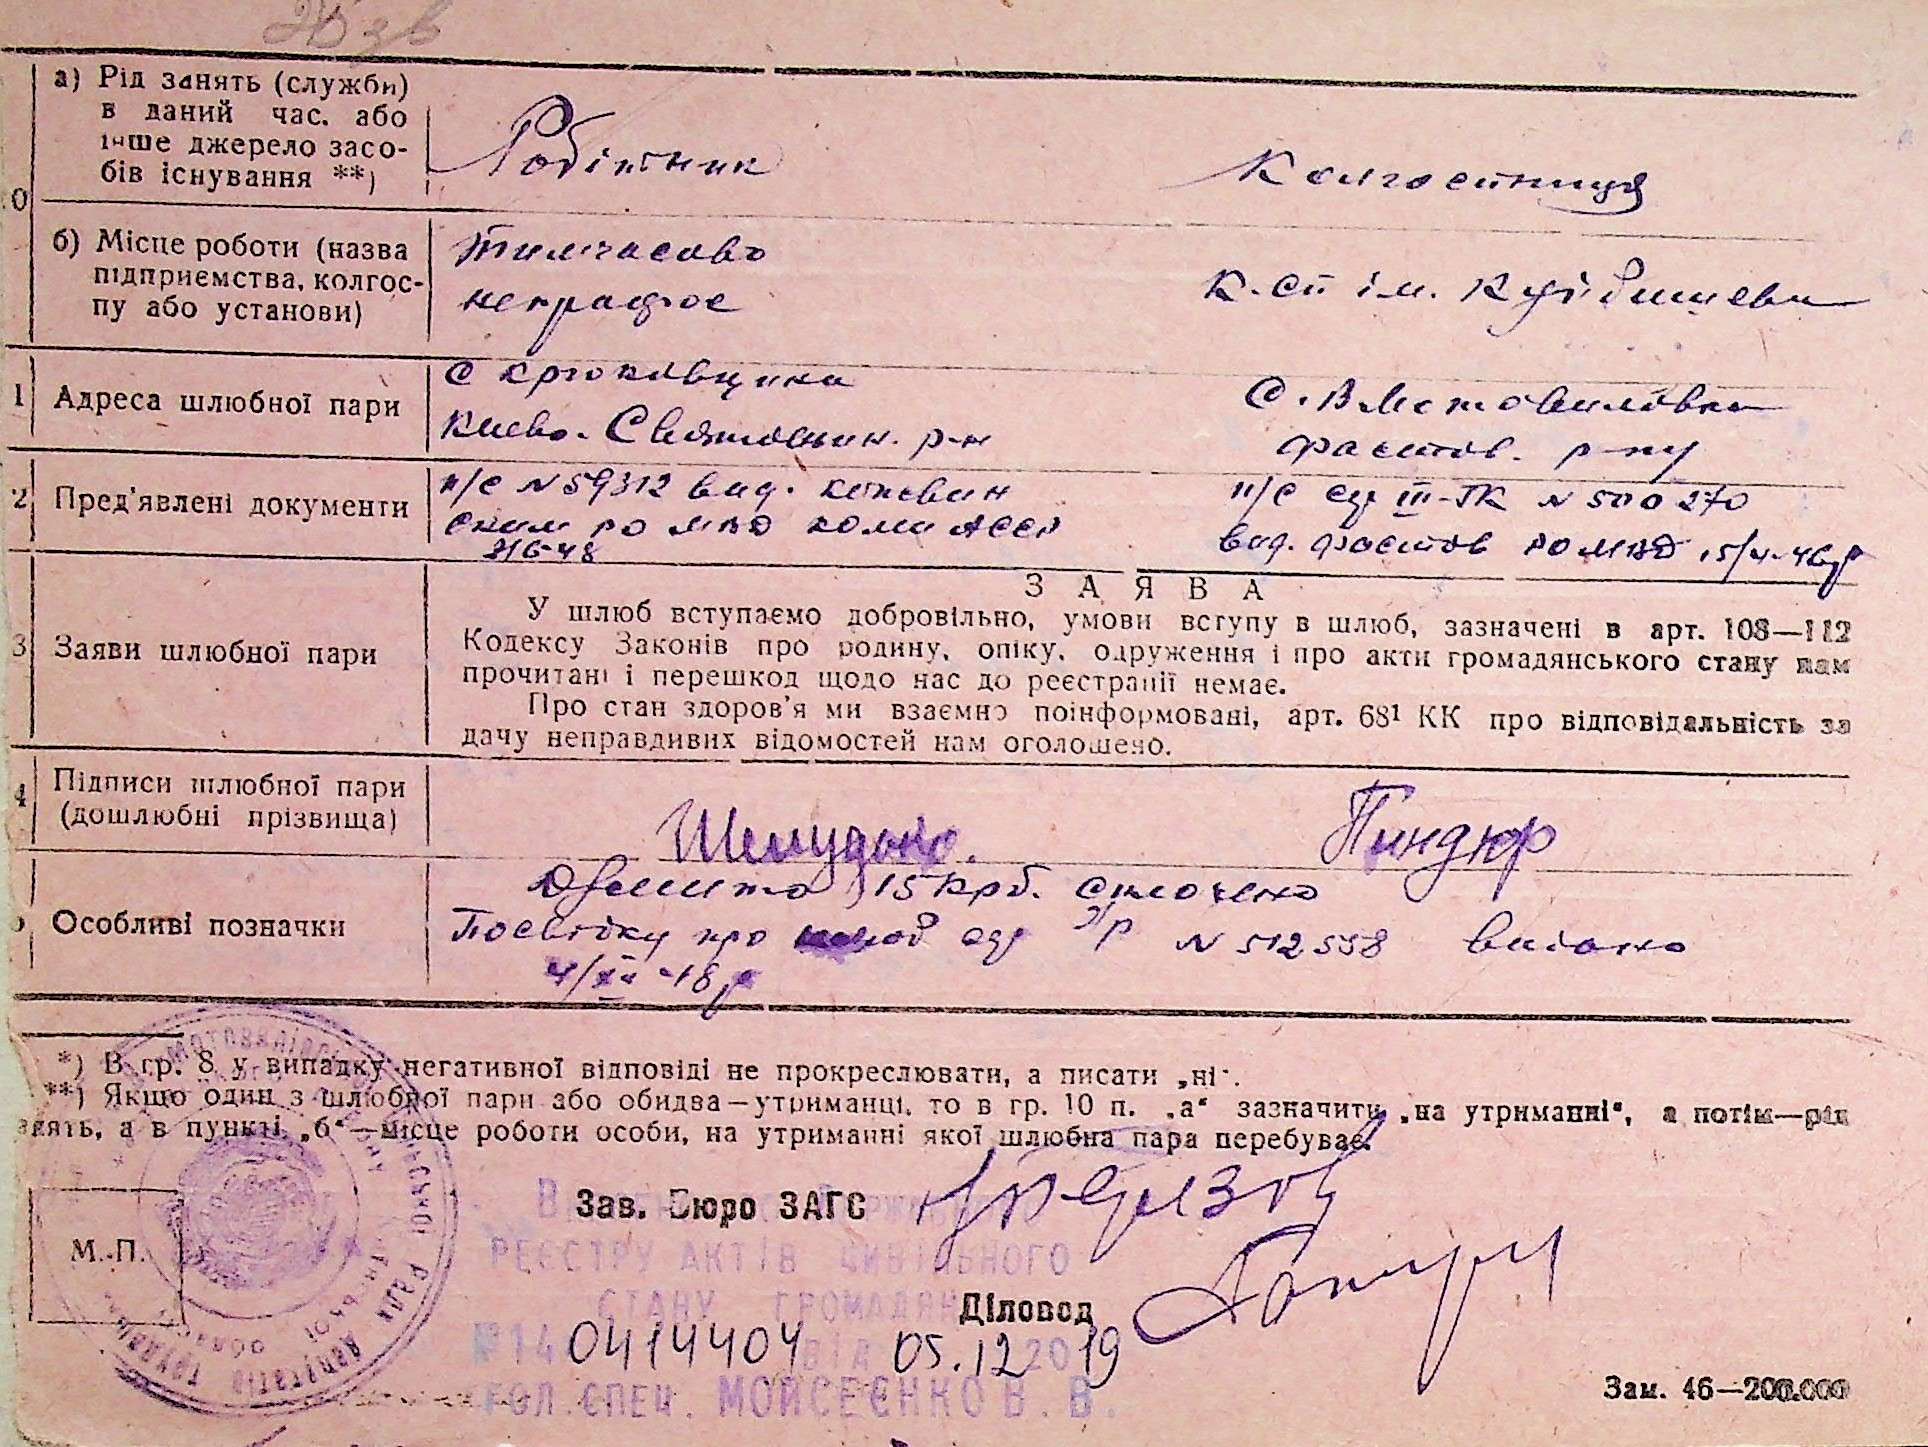 а) Рід занять (служби)
в даний час. або
інше джерело засо-
бів існування **)
Робітник
Колгоспниця
б) Місце роботи (назва
підприємства, колгос-
пу або установи)
Тимчасово
непрацює
К-сп ім. Куйбишева
1 Адреса шлюбної пари
с Крюковщина
Києво-Святошин. р-н
С. В Мотовиловка
Фастов. р-ну
2 Пред'явлені документи
п/с N 59312 вид.
РО МВД Коми АССР
п/с III-ТК N 500270
вид. Фастов РО МВД
З А Я В А
3 Заяви шлюбної пари
У шлюб вступаємо добровільно, умови вступу в шлюб, зазначені в арт. 108—112
Кодексу Законів про родину, опіку, одруження і про акти громадянського стану нам
прочитані і перешкод щодо нас до реєстрації немає.
Про стан здоров'я ми взаємно поінформовані, арт. 68¹ КК про відповідальність за
дачу неправдивих відомостей нам оголошено.
4 Підписи шлюбної пари
(дошлюбні прізвища)
Пиндюр
Особливі позначки
15 крб. сплочено
Посвідку про N 512558 видано
*) В гр. 8 у випадку негативної відповіді не прокреслювати, а писати „ні".
**) Якщо один з шлюбної пари або обидва—утриманці, то в гр. 10 п. „а" зазначити „на утриманні", а потім—рід
занять, а в пункті „б"—місце роботи особи, на утриманні якої шлюбна пара перебуває.
М. П.
Зав. Бюро ЗАГС
РЕЄСТРУ АКТІВ ЦИВІЛЬНОГО
СТАНУ ГРОМАДЯН
Діловод
№14 0414404 ВІД 05.12 2019
ГОЛ. СПЕЦ. МОЙСЕЄНКО В. В.
Зам. 46—200.000